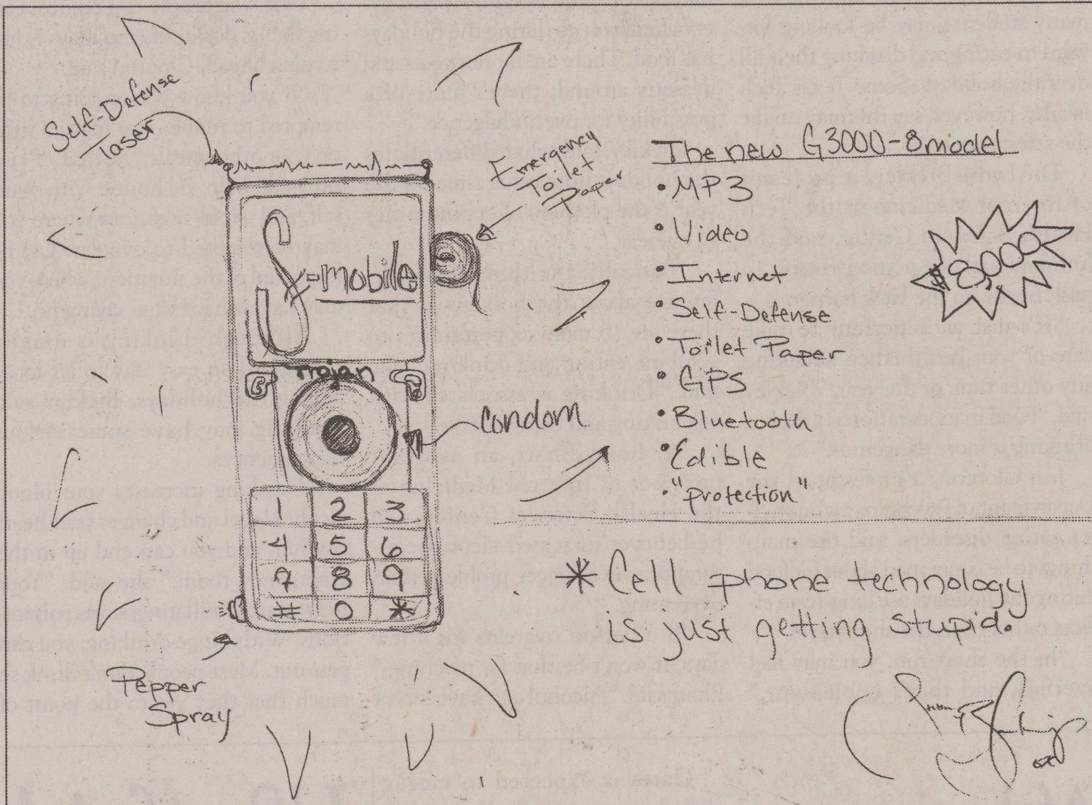 Self-Defense
laser
Emergency
Toilet
Paper
S-mobile
Trojan
Condom
1 2 3
4 5 6
7 8 9
# 0 *
Pepper
Spray
The new G3000-8 model
• MP3
• Video
• Internet
• Self-Defense
• Toilet Paper
• GPS
• Bluetooth
• Edible
• "Protection"
$8,000
* Cell phone technology
is just getting stupid.